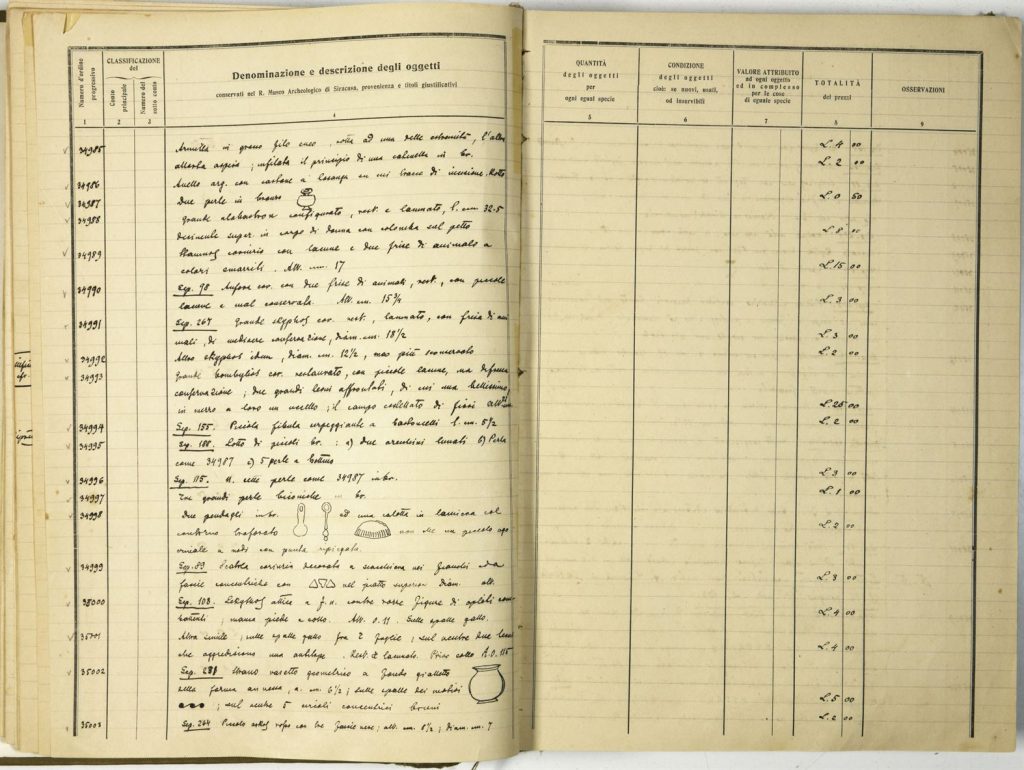 Numero d'ordine progressivo
CLASSIFICAZIONE
del
Conto principale
Numero del sotto conto
Denominazione e descrizione degli oggetti
conservati nel R. Museo Archeologico di Siracusa, provenienza e titoli giustificativi
1 2 3 4
34985 Armilla in grosso filo eneo, ad una delle estremità, l'altra
infilata il principio di una catenella in br.
34986 Anello arg. con castone a losanga su cui tracce di incisione. Rotto
34987 Due perle in bronzo
34988 Grande alabastron configurato, rest. e lacunato, l. cm. 32.5
desinente super. in corpo di donna con colomba sul petto
34989 Stamnos corinzio con lacune e due frise di animali a
colori smarriti. Alt. cm. 17
34990 Sep. 98 Anfora cor. con due frise di animali, rest., con piccole
lacune e mal conservata. Alt. cm. 15 ½
34991 Sep. 267 Grande skyphos cor. rest., lacunato, con freia di ani
mali, di mediocre conservazione, diam. cm. 18 ½
34992 Altro skyphos idem, diam. cm. 12 ½, ma più sconservato
34993 Grande bombylios cor. restaurato, con piccole lacune, ma di buona
conservazione; due grandi leoni affrontati, di cui uno bellissimo,
in mezzo a loro un uccello; il campo costellato di fiori
34994 Sep. 155. Piccola fibula serpeggiante a bastoncelli l. cm. 5 ½
34995 Sep. 188. Lotto di piccoli br.: a) due orecchini lunati b) Perla
come 34987 c) 5 perle a bottone
34996 Sep. 115. N. sette perle come 34987 in br.
34997 Tre grandi perle biconiche in br.
34998 Due pendagli in br. ed una calotta in lamiera col
contorno traforato non che un piccolo ago
crinale a nodi con punta ripiegata.
34999 Sep. 89 Scatola corinzia decorata a scacchiera nei fianchi da
fascie concentriche con nel piatto superior. Diam. alt.
35000 Sep. 108. Lekythos attica a f. n. contro rosse figure di opliti com
battenti; manca piede e collo. Alt. 0.11. Sulle spalle gallo.
35001 Altra simile; sulle spalle gallo fra 2 foglie; sul ventre due leoni
che aggrediscono una antilope. Rest. e lacunata. Privo collo A. 0.115
35002 Sep. 281 Strano vasetto geometrico a fondo gialletto
della forma annessa, a. cm. 6 ½; sulle spalle dei
; sul ventre 5 circoli concentrici bruni
35003 Sep. 204 Piccolo askos rosso con tre fascie nere; alt. cm. 8 ½; diam. cm. 7
QUANTITÀ
degli oggetti
per
ogni egual specie
CONDIZIONE
degli oggetti
cioè: se nuovi, usati,
od inservibili
VALORE ATTRIBUITO
ad ogni oggetto
ed in complesso
per le cose
di eguale specie
TOTALITÀ
dei prezzi
OSSERVAZIONI
5 6 7 8 9
L. 4 00
L. 2 00
L. 0 50
L. 8 00
L. 15 00
L. 3 00
L. 3 00
L. 2 00
L. 25 00
L. 2 00
L. 3 00
L. 1 00
L. 2 00
L. 3 00
L. 4 00
L. 4 00
L. 5 00
L. 2 00